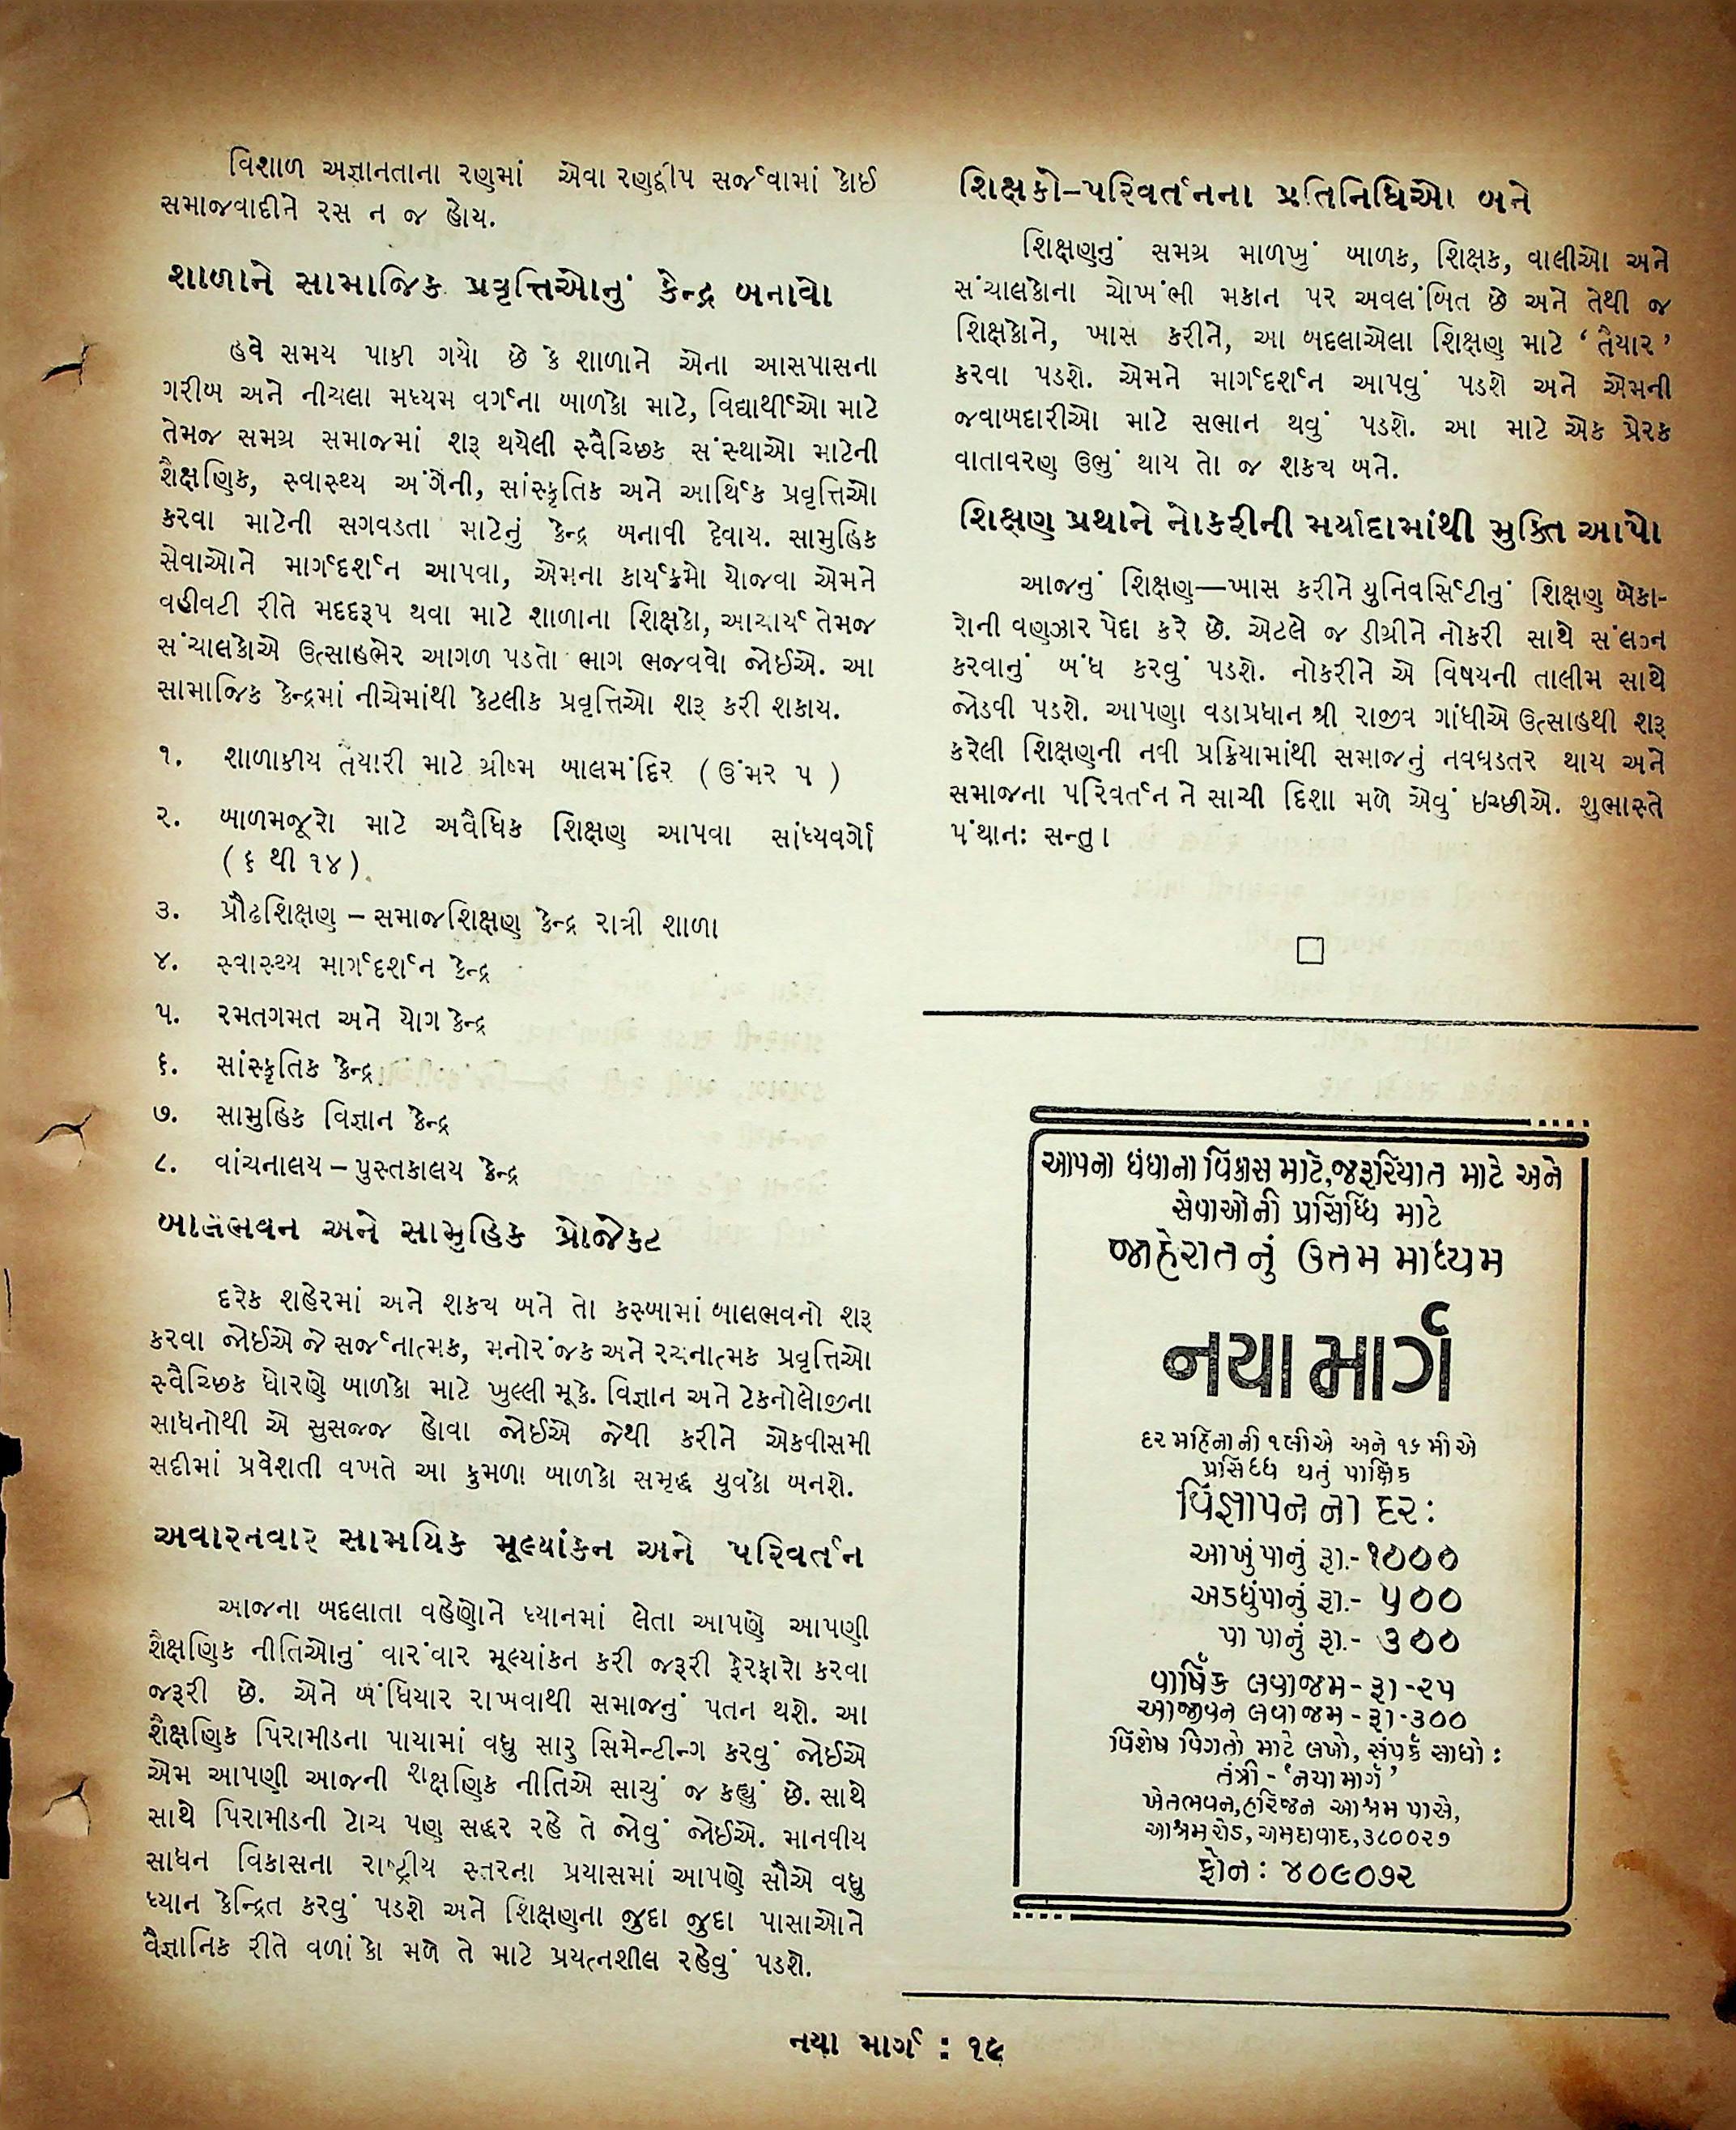 વિશાળ અજ્ઞાનતાના રણમાં એવા રણદ્વીપ સર્જવામાં કોઈ
સમાજવાદીને રસ ન જ હોય.
શાળાને સામાજિક પ્રવૃત્તિઓનું કેન્દ્ર બનાવો
હવે સમય પાકી ગયો છે કે શાળાને એના આસપાસના
ગરીબ અને નીચલા મધ્યમ વર્ગના બાળકો માટે, વિદ્યાર્થીઓ માટે
તેમજ સમગ્ર સમાજમાં શરૂ થયેલી સ્વૈચ્છિક સંસ્થાઓ માટેની
શૈક્ષણિક, સ્વાસ્થ્ય અંગેની, સાંસ્કૃતિક અને આર્થિક પ્રવૃત્તિઓ
કરવા માટેની સગવડતા માટેનું કેન્દ્ર બનાવી દેવાય. સામુહિક
સેવાઓને માર્ગદર્શન આપવા, એમના કાર્યક્રમો યોજવા એમને
વહીવટી રીતે મદદરૂપ થવા માટે શાળાના શિક્ષકો, આચાર્ય તેમજ
સંચાલકોએ ઉત્સાહભેર આગળ પડતો ભાગ ભજવવો જોઈએ. આ
સામાજિક કેન્દ્રમાં નીચેમાંથી કેટલીક પ્રવૃત્તિઓ શરૂ કરી શકાય.
૧. શાળાકીય તૈયારી માટે ગ્રીષ્મ બાલમંદિર ( ઉંમર ૫ )
૨. બાળમજૂરો માટે અવૈધિક શિક્ષણ આપવા સાંધ્યવર્ગો
( ૬ થી ૧૪ ).
૩. પ્રૌઢશિક્ષણ – સમાજશિક્ષણ કેન્દ્ર રાત્રી શાળા
૪. સ્વાસ્થ્ય માર્ગદર્શન કેન્દ્ર
૫. રમતગમત અને યોગ કેન્દ્ર
૬. સાંસ્કૃતિક કેન્દ્ર
૭. સામુહિક વિજ્ઞાન કેન્દ્ર
૮. વાંચનાલય – પુસ્તકાલય કેન્દ્ર
બાલભવન અને સામુહિક પ્રોજેકટ
દરેક શહેરમાં અને શકય બને તો કસ્બામાં બાલભવનો શરૂ
કરવા જોઈએ જે સર્જનાત્મક, મનોરંજક અને રચનાત્મક પ્રવૃત્તિઓ
સ્વૈચ્છિક ધોરણે બાળકો માટે ખુલ્લી મૂકે. વિજ્ઞાન અને ટેકનોલોજીના
સાધનોથી એ સુસજ્જ હોવા જોઈએ જેથી કરીને એકવીસમી
સદીમાં પ્રવેશતી વખતે આ કુમળા બાળકો સમૃદ્ધ યુવકો બનશે.
અવારનવાર સામયિક મૂલ્યાંકન અને પરિવર્તન
આજના બદલાતા વહેણોને ધ્યાનમાં લેતા આપણે આપણી
શૈક્ષણિક નીતિઓનું વારંવાર મૂલ્યાંકન કરી જરૂરી ફેરફારો કરવા
જરૂરી છે. એને બંધિયાર રાખવાથી સમાજનું પતન થશે. આ
શૈક્ષણિક પિરામીડના પાયામાં વધુ સારુ સિમેન્ટીન્ગ કરવું જોઈએ
એમ આપણી આજની શૈક્ષણિક નીતિએ સાચું જ કહ્યું છે. સાથે
સાથે પિરામીડની ટોચ પણ સદ્ધર રહે તે જોવું જોઈએ. માનવીય
સાધન વિકાસના રાષ્ટ્રીય સ્તરના પ્રયાસમાં આપણે સૌએ વધુ
ધ્યાન કેન્દ્રિત કરવું પડશે અને શિક્ષણના જુદા જુદા પાસાઓને
વૈજ્ઞાનિક રીતે વળાંકો મળે તે માટે પ્રયત્નશીલ રહેવું પડશે.
શિક્ષકો–પરિવર્તનના પ્રતિનિધિઓ બને
શિક્ષણનું સમગ્ર માળખું બાળક, શિક્ષક, વાલીઓ અને
સંચાલકોના ચોખંભી મકાન પર અવલંબિત છે અને તેથી જ
શિક્ષકોને, ખાસ કરીને, આ બદલાએલા શિક્ષણ માટે ‘તૈયાર’
કરવા પડશે. એમને માર્ગદર્શન આપવું પડશે અને એમની
જવાબદારીઓ માટે સભાન થવું પડશે. આ માટે એક પ્રેરક
વાતાવરણ ઉભું થાય તો જ શકય બને.
શિક્ષણ પ્રથાને નોકરીની મર્યાદામાંથી મુક્તિ આપો
આજનું શિક્ષણ—ખાસ કરીને યુનિવર્સિટીનું શિક્ષણ બેકા-
રોની વણઝાર પેદા કરે છે. એટલે જ ડીગ્રીને નોકરી સાથે સંલગ્ન
કરવાનું બંધ કરવું પડશે. નોકરીને એ વિષયની તાલીમ સાથે
જોડવી પડશે. આપણા વડાપ્રધાન શ્રી રાજીવ ગાંધીએ ઉત્સાહથી શરૂ
કરેલી શિક્ષણની નવી પ્રક્રિયામાંથી સમાજનું નવઘડતર થાય અને
સમાજના પરિવર્તન ને સાચી દિશા મળે એવું ઇચ્છીએ. શુભાસ્તે
પંથાનઃ સન્તુ।
આપના ધંધાના વિકાસ માટે,જરૂરિયાત માટે અને
સેવાઓની પ્રસિધ્ધિ માટે
જાહેરાતનું ઉત્તમ માધ્યમ
નયા માર્ગ
દર મહિનાની ૧લીએ અને ૧૬મીએ
પ્રસિધ્ધ થતું પાક્ષિક
વિજ્ઞાપનના દર:
આખું પાનું રૂા.-૧૦૦૦
અડધુંપાનું રૂા.- ૫૦૦
પા પાનું રૂા.- ૩૦૦
વાર્ષિક લવાજમ-રૂા-૨૫
આજીવન લવાજમ-રૂા-૩૦૦
વિશેષ વિગતો માટે લખો, સંપર્ક સાધો:
તંત્રી-‘નયા માર્ગ’
ખેતભવન,હરિજન આશ્રમ પાસે,
આશ્રમ રોડ, અમદાવાદ,૩૮૦૦૨૭
ફોન: ૪૦૯૦૭૨
નયા માર્ગ : ૧૯